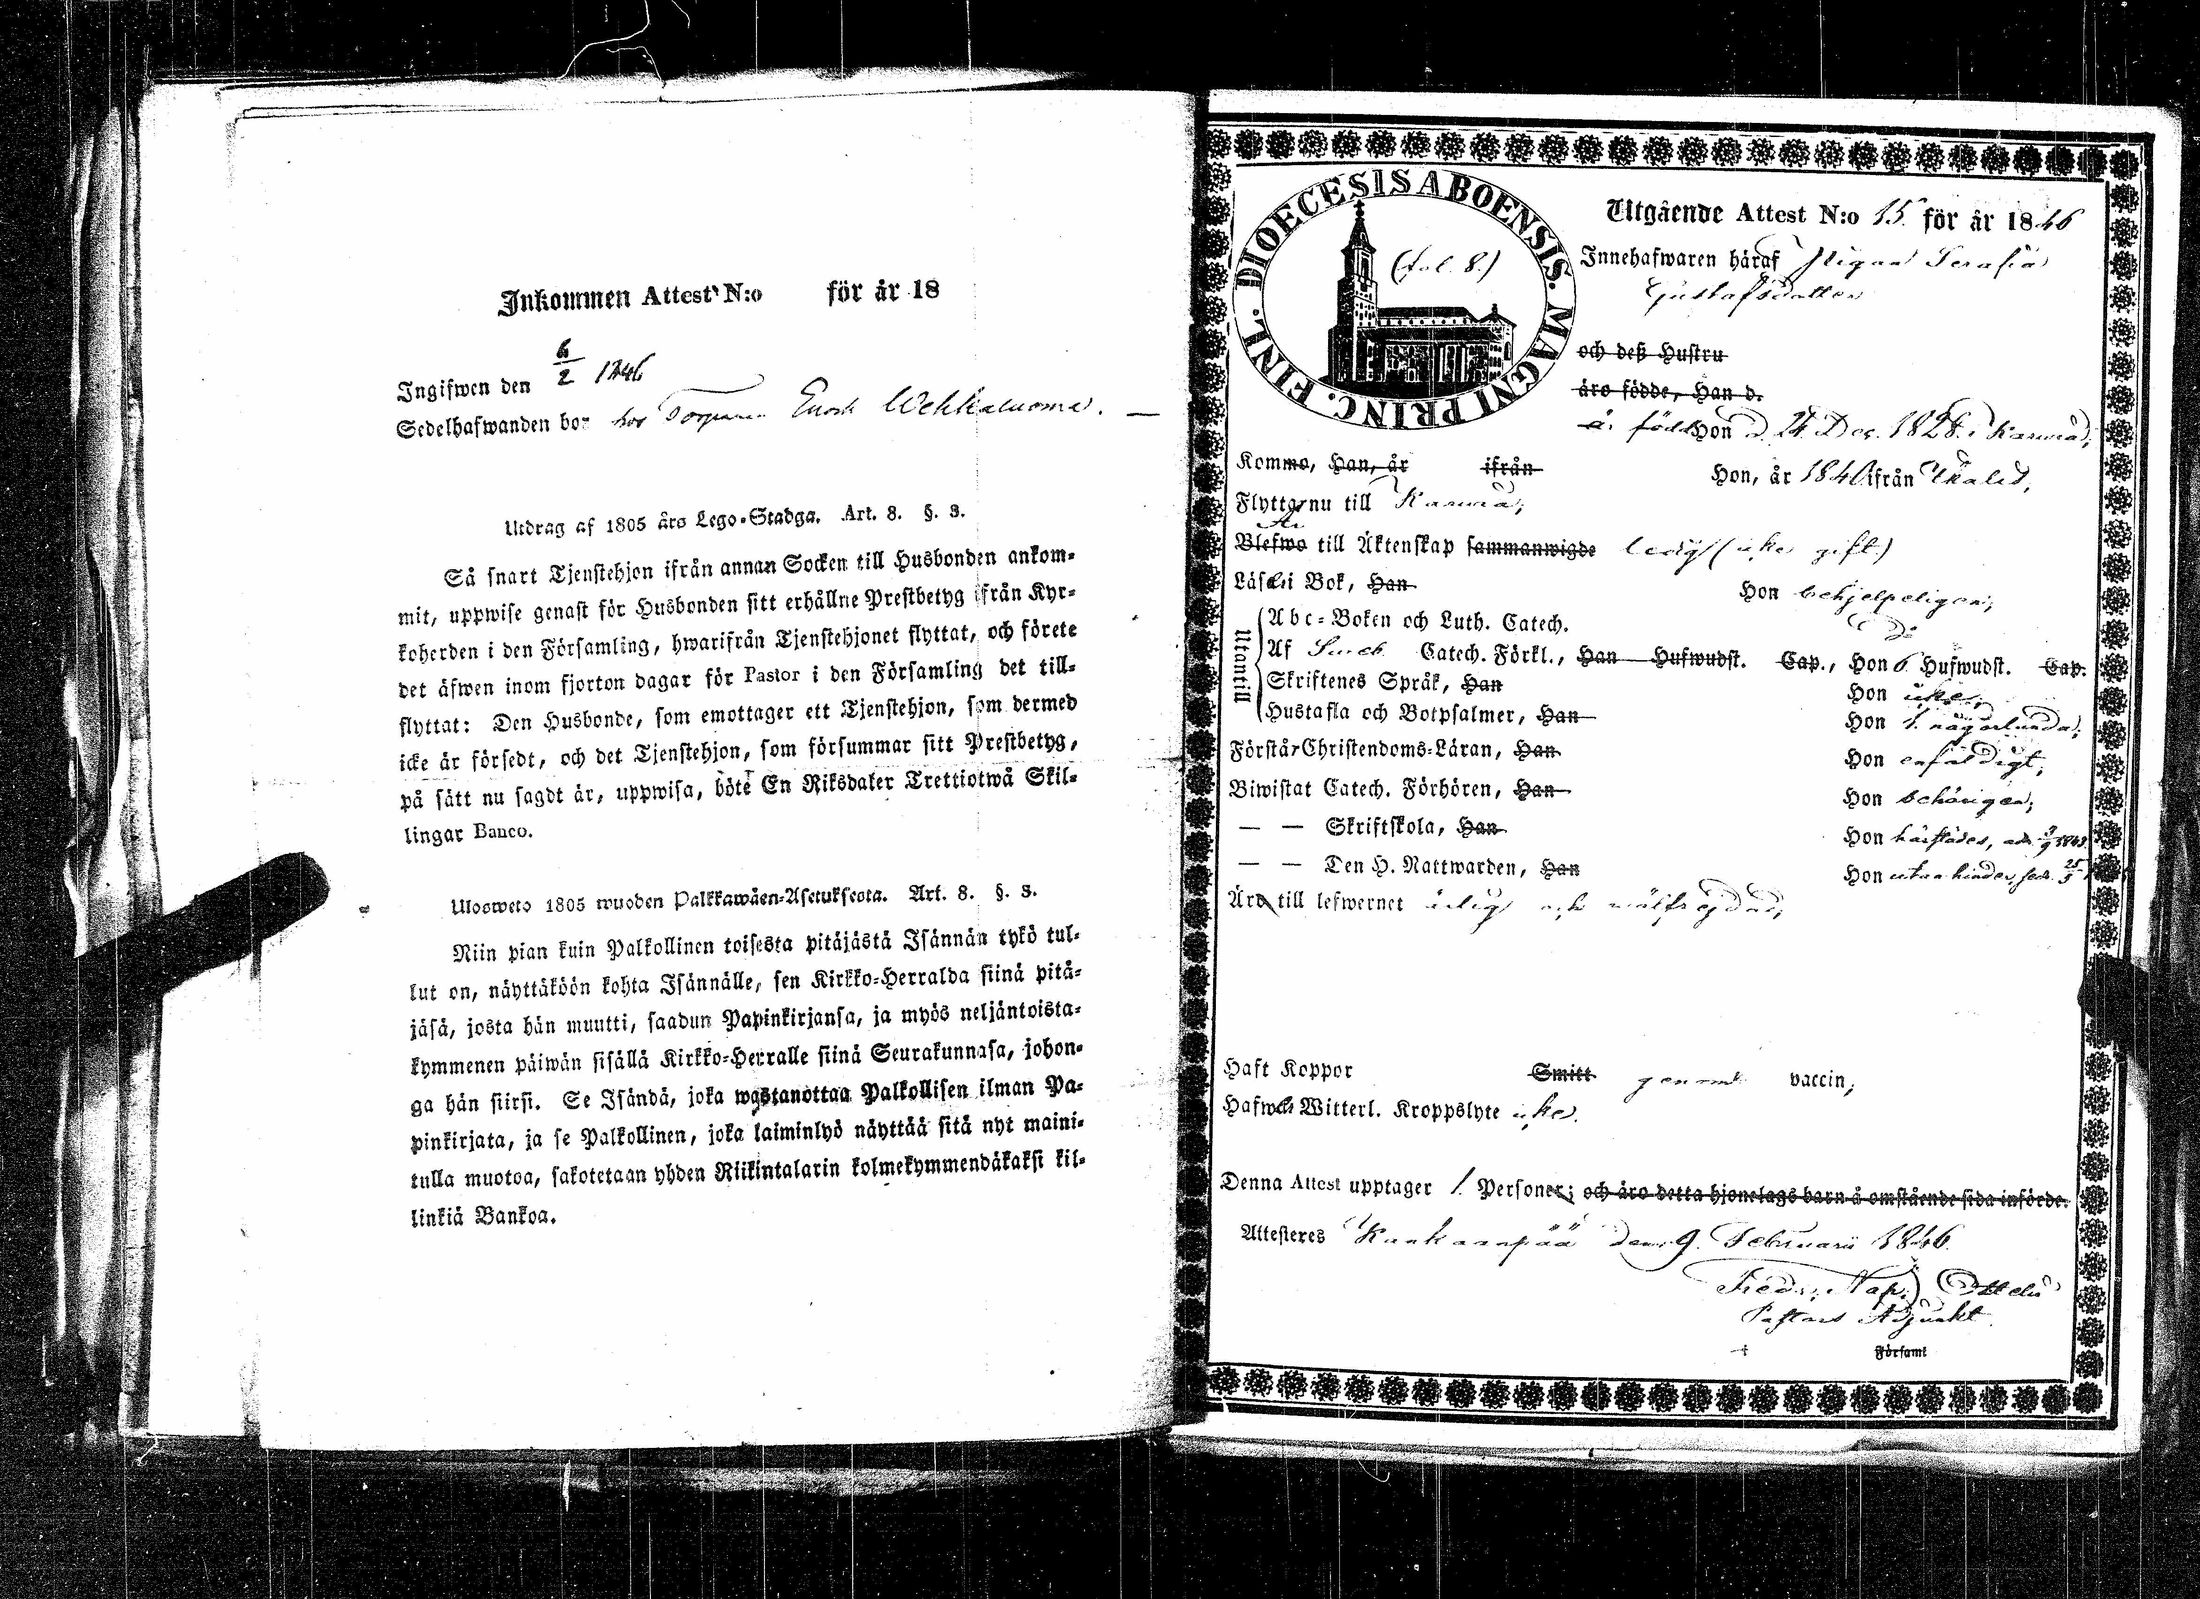 Inkommen Attest N:o för år 18
Ingifwen den 6/2 1846
Sedelhafwanden bor hos Torparen Enoch Wehkaluoma.
Utdrag af 1805 års Lego-Stadga. Art. 8. §. 3.
Så snart Tjenstehjon ifrån annan Socken till Husbonden ankom-
mit, uppwise genast för Husbonden sitt erhållne Prestbetyg ifrån Kyr-
koherden i den Församling, hwarifrån Tjenstehjonet flyttat, och förete
det äfwen inom fjorton dagar för Pastor i den Församling det till-
flyttat: Den Husbonde, som emottager ett Tjenstehjon, som dermed
icke är försedt, och det Tjenstehjon, som försummar sitt Prestbetyg,
på sätt nu sagdt är, uppwisa, böte En Riksdaler Trettiotwå Skil-
lingar Banco.
Ulosweto 1805 wuoden Palkkawäen-Asetuksesta. Art. 8. §. 3.
Niin pian kuin Palkollinen toisesta pitäjästä Isännän tykö tul-
lut on, näyttäköön kohta Isännälle, sen Kirkko-Herralda siinä pitä-
jäsä, josta hän muutti, saadun Papinkirjansa, ja myös neljäntoista-
kymmenen päiwän sisällä Kirkko-Herralle siinä Seurakunnasa, johon-
ga hän siirsi. Se Isändä, joka wastanottaa Palkollisen ilman Pa-
pinkirjata, ja se Palkollinen, joka laiminlyö näyttää sitä nyt maini-
tulla muotoa, sakotetaan yhden Riikintalarin kolmekymmendäkaksi kil-
linkiä Bankoa.
DIOECESIS ABOENSIS. MAGNI PRINC. FINL.
(fol. 8.)
Utgående Attest N:o 15. för år 1846
Innehafwaren häraf Pigan Serafia
Gustafsdotter
och deß Hustru
äro födde, Han d.
är född Hon d. 24 Dec. 1828. i Karwia,
Kommo, Han, år ifrån Hon, år 1840 ifrån Ikalis,
Flyttar nu till Karwia,
Är
Blefwo till Äktenskap sammanwigde ledig (icke gift)
Läser i Bok, Han Hon behjelpeligen,
Utantill
Abc-Boken och Luth. Catech. do
Af Sweb. Catech. Förkl., Han Hufwudst. Cap., Hon 6 Hufwudst. Cap.
Skriftenes Språk, Han Hon icke,
Hustafla och Botpsalmer, Han Hon någorlunda,
Förstår Christendoms-Läran, Han Hon enfaldigt,
Biwistat Catech. Förhören, Han Hon behörigen,
— — Skriftskola, Han Hon härstädes,
— — Den H. Nattwarden, Han Hon utan hinder, sed. 25/5
Äro till lefwernet ärlig och wälfrejdad,
Haft Koppor Smitt genom vaccin,
Hafwer Witterl. Kroppslyte icke.
Denna Attest upptager 1. Personer; och äro detta hjonelags barn å omstående sida införde.
Attesteres Kankaanpää den 9. Februarii 1846.
Fredr. Nap.
Pastors Adjunkt.
i Församl